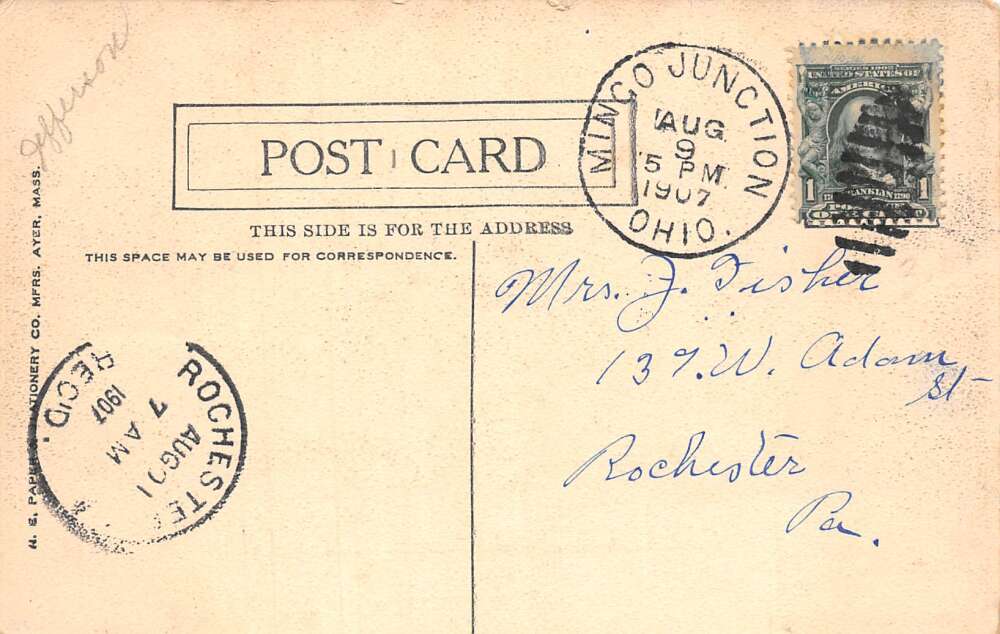 Jefferson
SERIES 1902
UNITED STATES OF
AMERICA
FRANKLIN
1 1
MINGO JUNCTION
AUG.
9
5 PM.
1907
OHIO.
POST CARD
THIS SIDE IS FOR THE ADDRESS
THIS SPACE MAY BE USED FOR CORRESPONDENCE.
Mrs. J. Fisher
137. W. Adam
St
Rochester
Pa.
ROCHESTE
AUG
7 AM
1907
REC'D.
CO. MFRS. AYER, MASS.